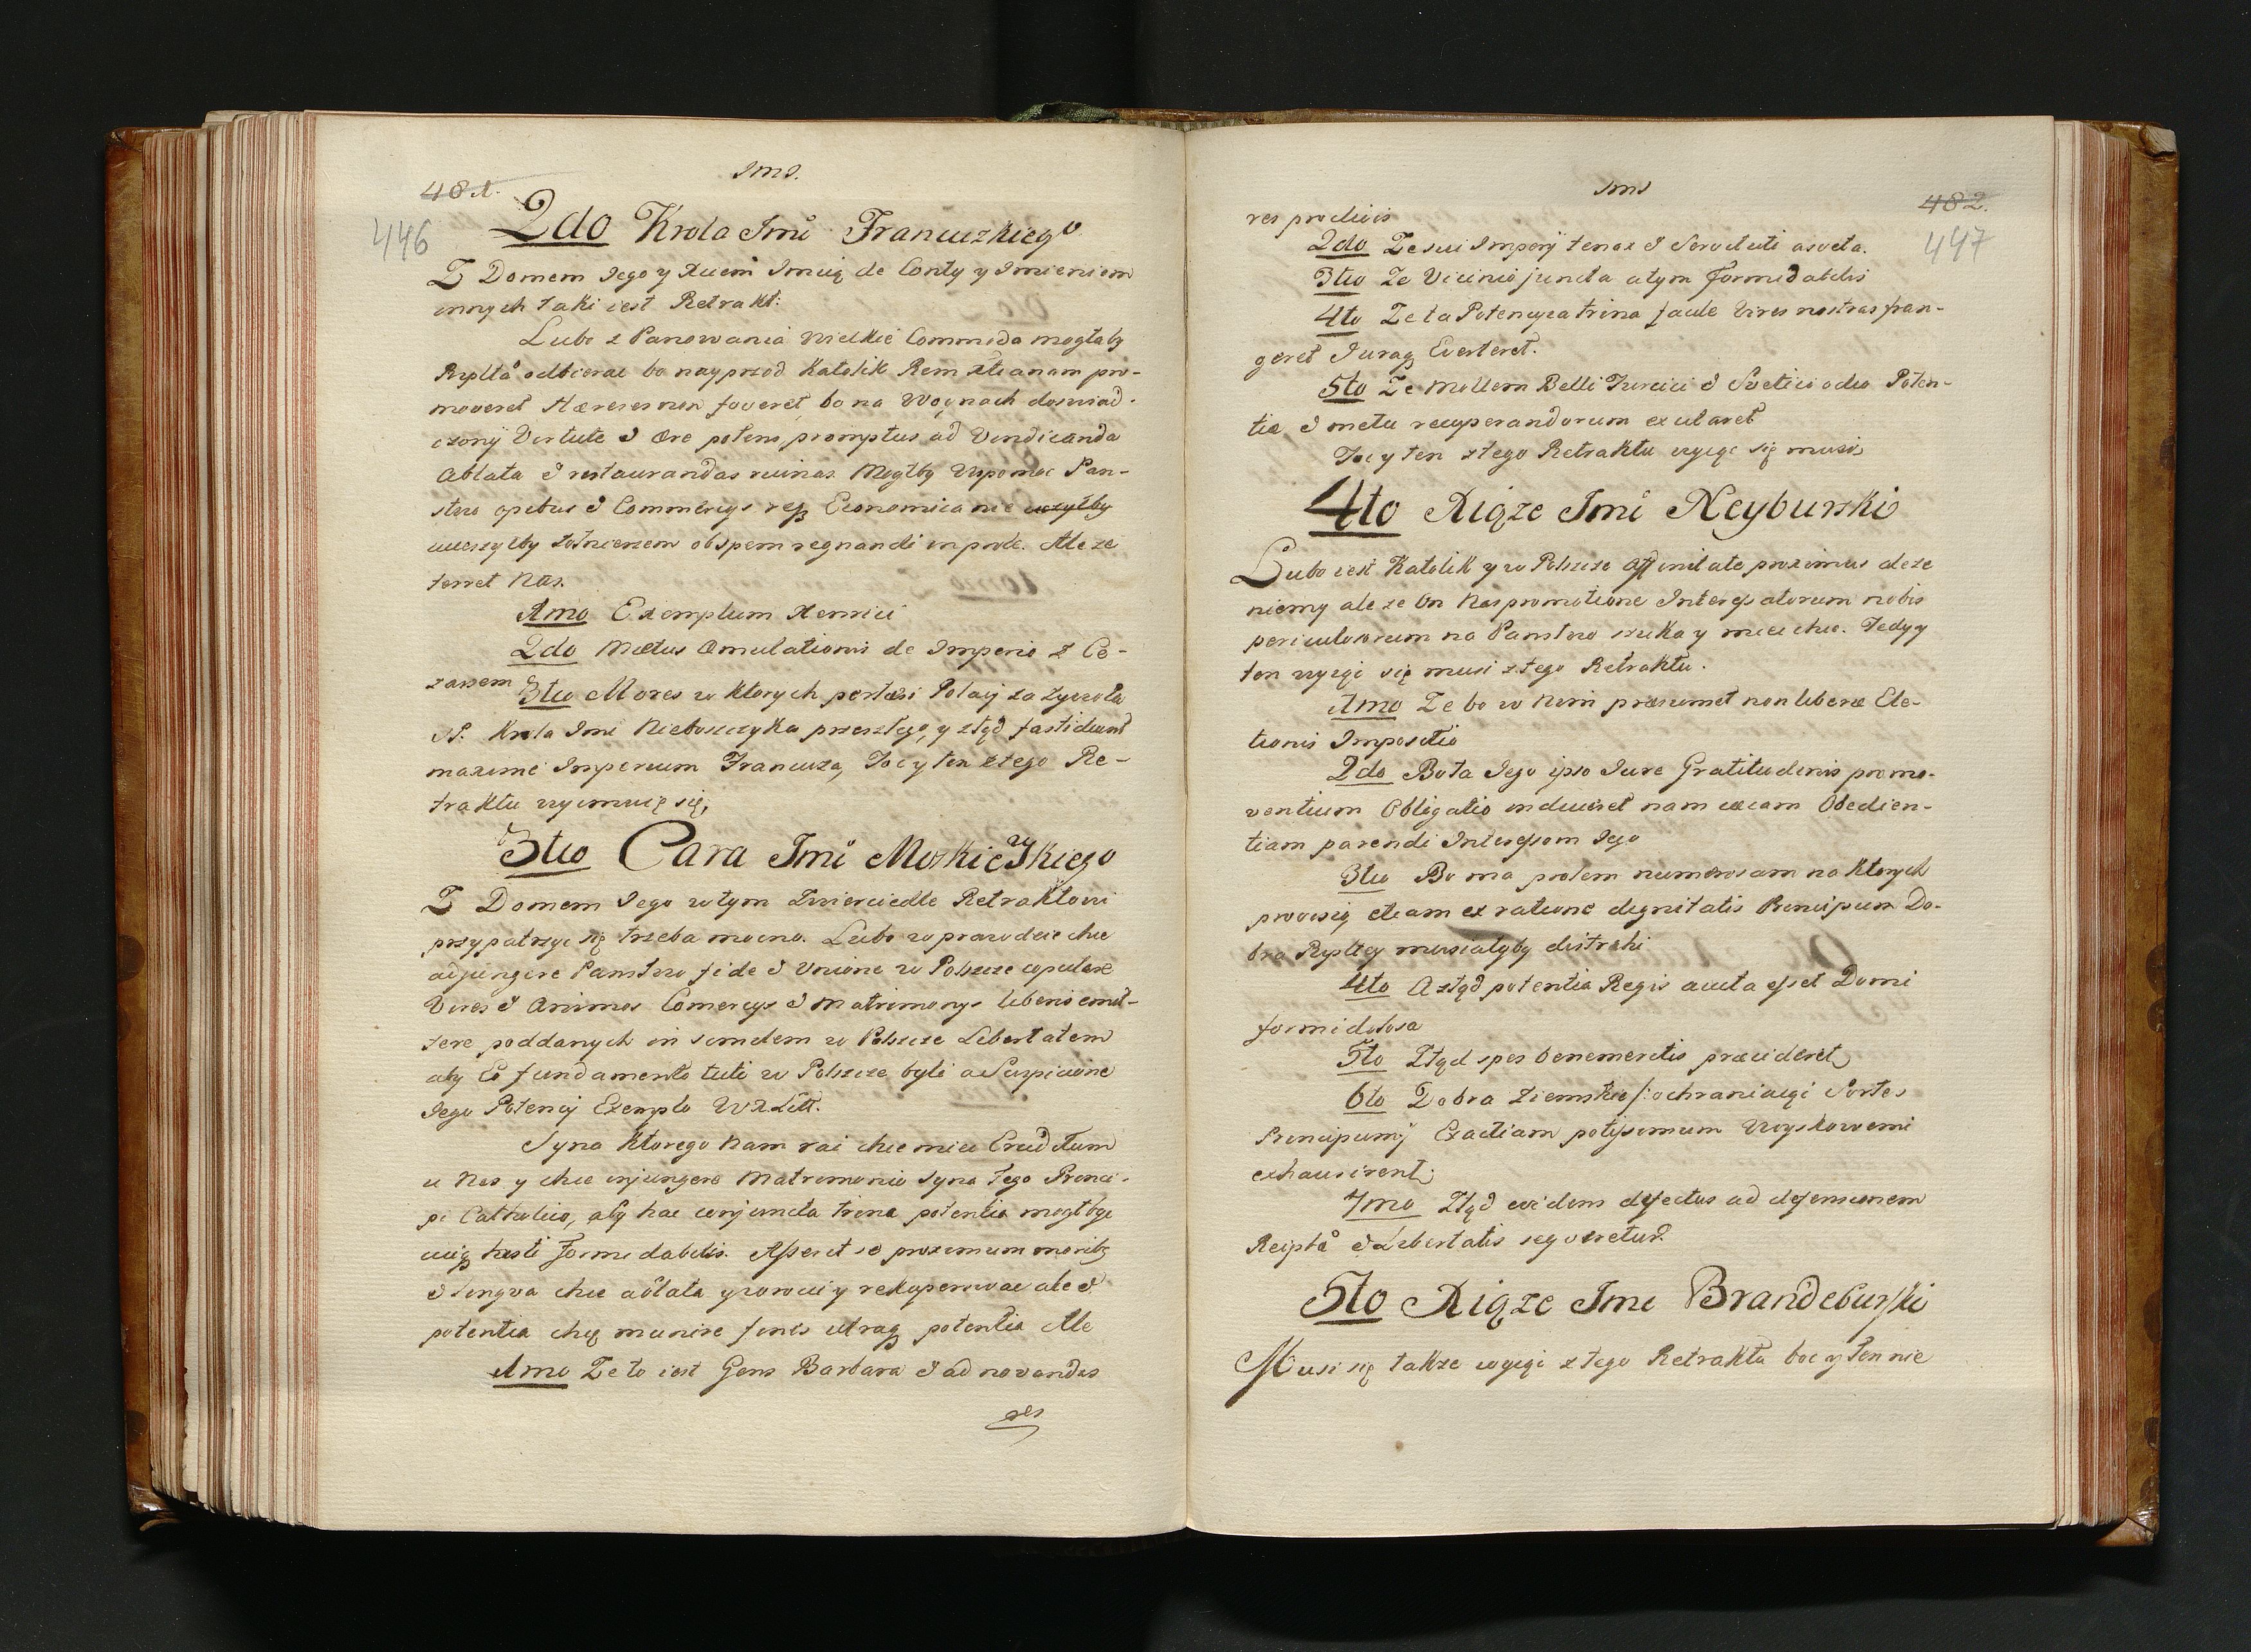 Jms.
481.
446
2do Krola Jmć Francuzkiego
Z Domem Jego y Xiciem Jmcią de Conty y Jmieniem
innych taki iest Retrakt:
Lubo z Panowania wielkie Commoda mogłaby
Rzpltå odbierac bo nayprzod Katolik Rem Xtianam pro-
moveret Hæreses non foveret, bo na Woynach doswiad-
czony Virtute & ære potens, promptus ad Vindicanda
Ablata & restaurandas ruinas. Mogłby wspomoc Pan-
stwo opibus & Commercys reqз Economica nie uszyłby
cieszyłby Zołnierzem ob spem regnandi in prole. Ale ze
terret Nas.
1mo Exemplum Henrici
2do Metus æmulationis de Imperio z Ce-
zarzem
3tio Mores w ktorych pertæsi Polacy za zywota
S. Krola Jmć Nieboszczyka przeszłego, y ztąd fastidiunt
maxime Imperium Francuza, Toć y ten z tego Re-
traktu wyimuię się,
3tio Cara Jmć Moskiewskiego
Z Domem Jego w tym Zwierciedle Retraktowi
przypatrzyć się trzeba mocno. Lubo w prawdzie chce
adjungere Panstwo fide & Unione w Polszcze copulare
Vires & Animos Comercys & matrimonys liberis emit-
tere poddanych in eundem w Polszcze Libertatem
aby Eo fundamento tuti w Polszcze byli a Suspicione
Jego Potency Exemplo W X Litt.
Syna ktorego Nam rai chce miec Eruditum
u Nas y chce injungere Matrimonio syna tego Princi-
pi Catholico, aby hac conjuncta trina potentia mogł byc
cuiqз hosti formidabilis. Asserit se proximum moribз
& lingva chce ablata y rowici y rekuperowac ale &
potentia chcę munire fines utraqз potentia Ale
1mo Ze to iest Gens Barbara & ad novandas
res
Jms
482.
447
res proclivis
2do Ze sui Impery tenax & Servituti asveta.
3tio Ze Vicinio juncta a tym formidabilis
4to Ze ta Potencya trina facile Vires nostras fran-
geret Juraqз Everteret.
5to Ze mollem Belli Turcici & Svetici odio Poten-
tiæ & metu recuperandorum excitaret
Toć y ten z tego Retraktu wyiąc się musi,
4to Xiąze Jmć Neyburski
Lubo iest Katolik y w Polszcze affinitate proximus deze
niemy ale ze On Nas promotione Interessatorum nobis
periculosorum na Panstwo szuka y miec chce. Tedy y
ten wyiąc się musi z tego Retraktu.
1mo Ze bo w Nim præsumet non liberæ Ele-
ctionis Impositio
2do Bo ta Jego ipso Jure Gratitudinis promo-
ventium Obligatio induceret nam cæcam Obedien-
tiam parendi Interessom Jego
3tio Bo ma prolem numerosam na ktorych
prowisią etiam ex ratione dignitatis Principum Do-
bra Rzpltey musiałyby distrahi
4to A ztąd potentia Regis aucta esset Domi
formidolosa
5to Ztąd spes benemeritis præcideret,
6to Dobra Ziemskie /:ochraniaiąc Sortes
Principum:/ Exactiam potissimum Woyskowemi
exhaurirent;
7mo Ztąd evidens defectus ad defensionem
Reipltå & Libertatis seqveretur.
5to Xiąze Jmć Brandeburski
Musi się takze wyiąc z tego Retraktu boć y ten nie